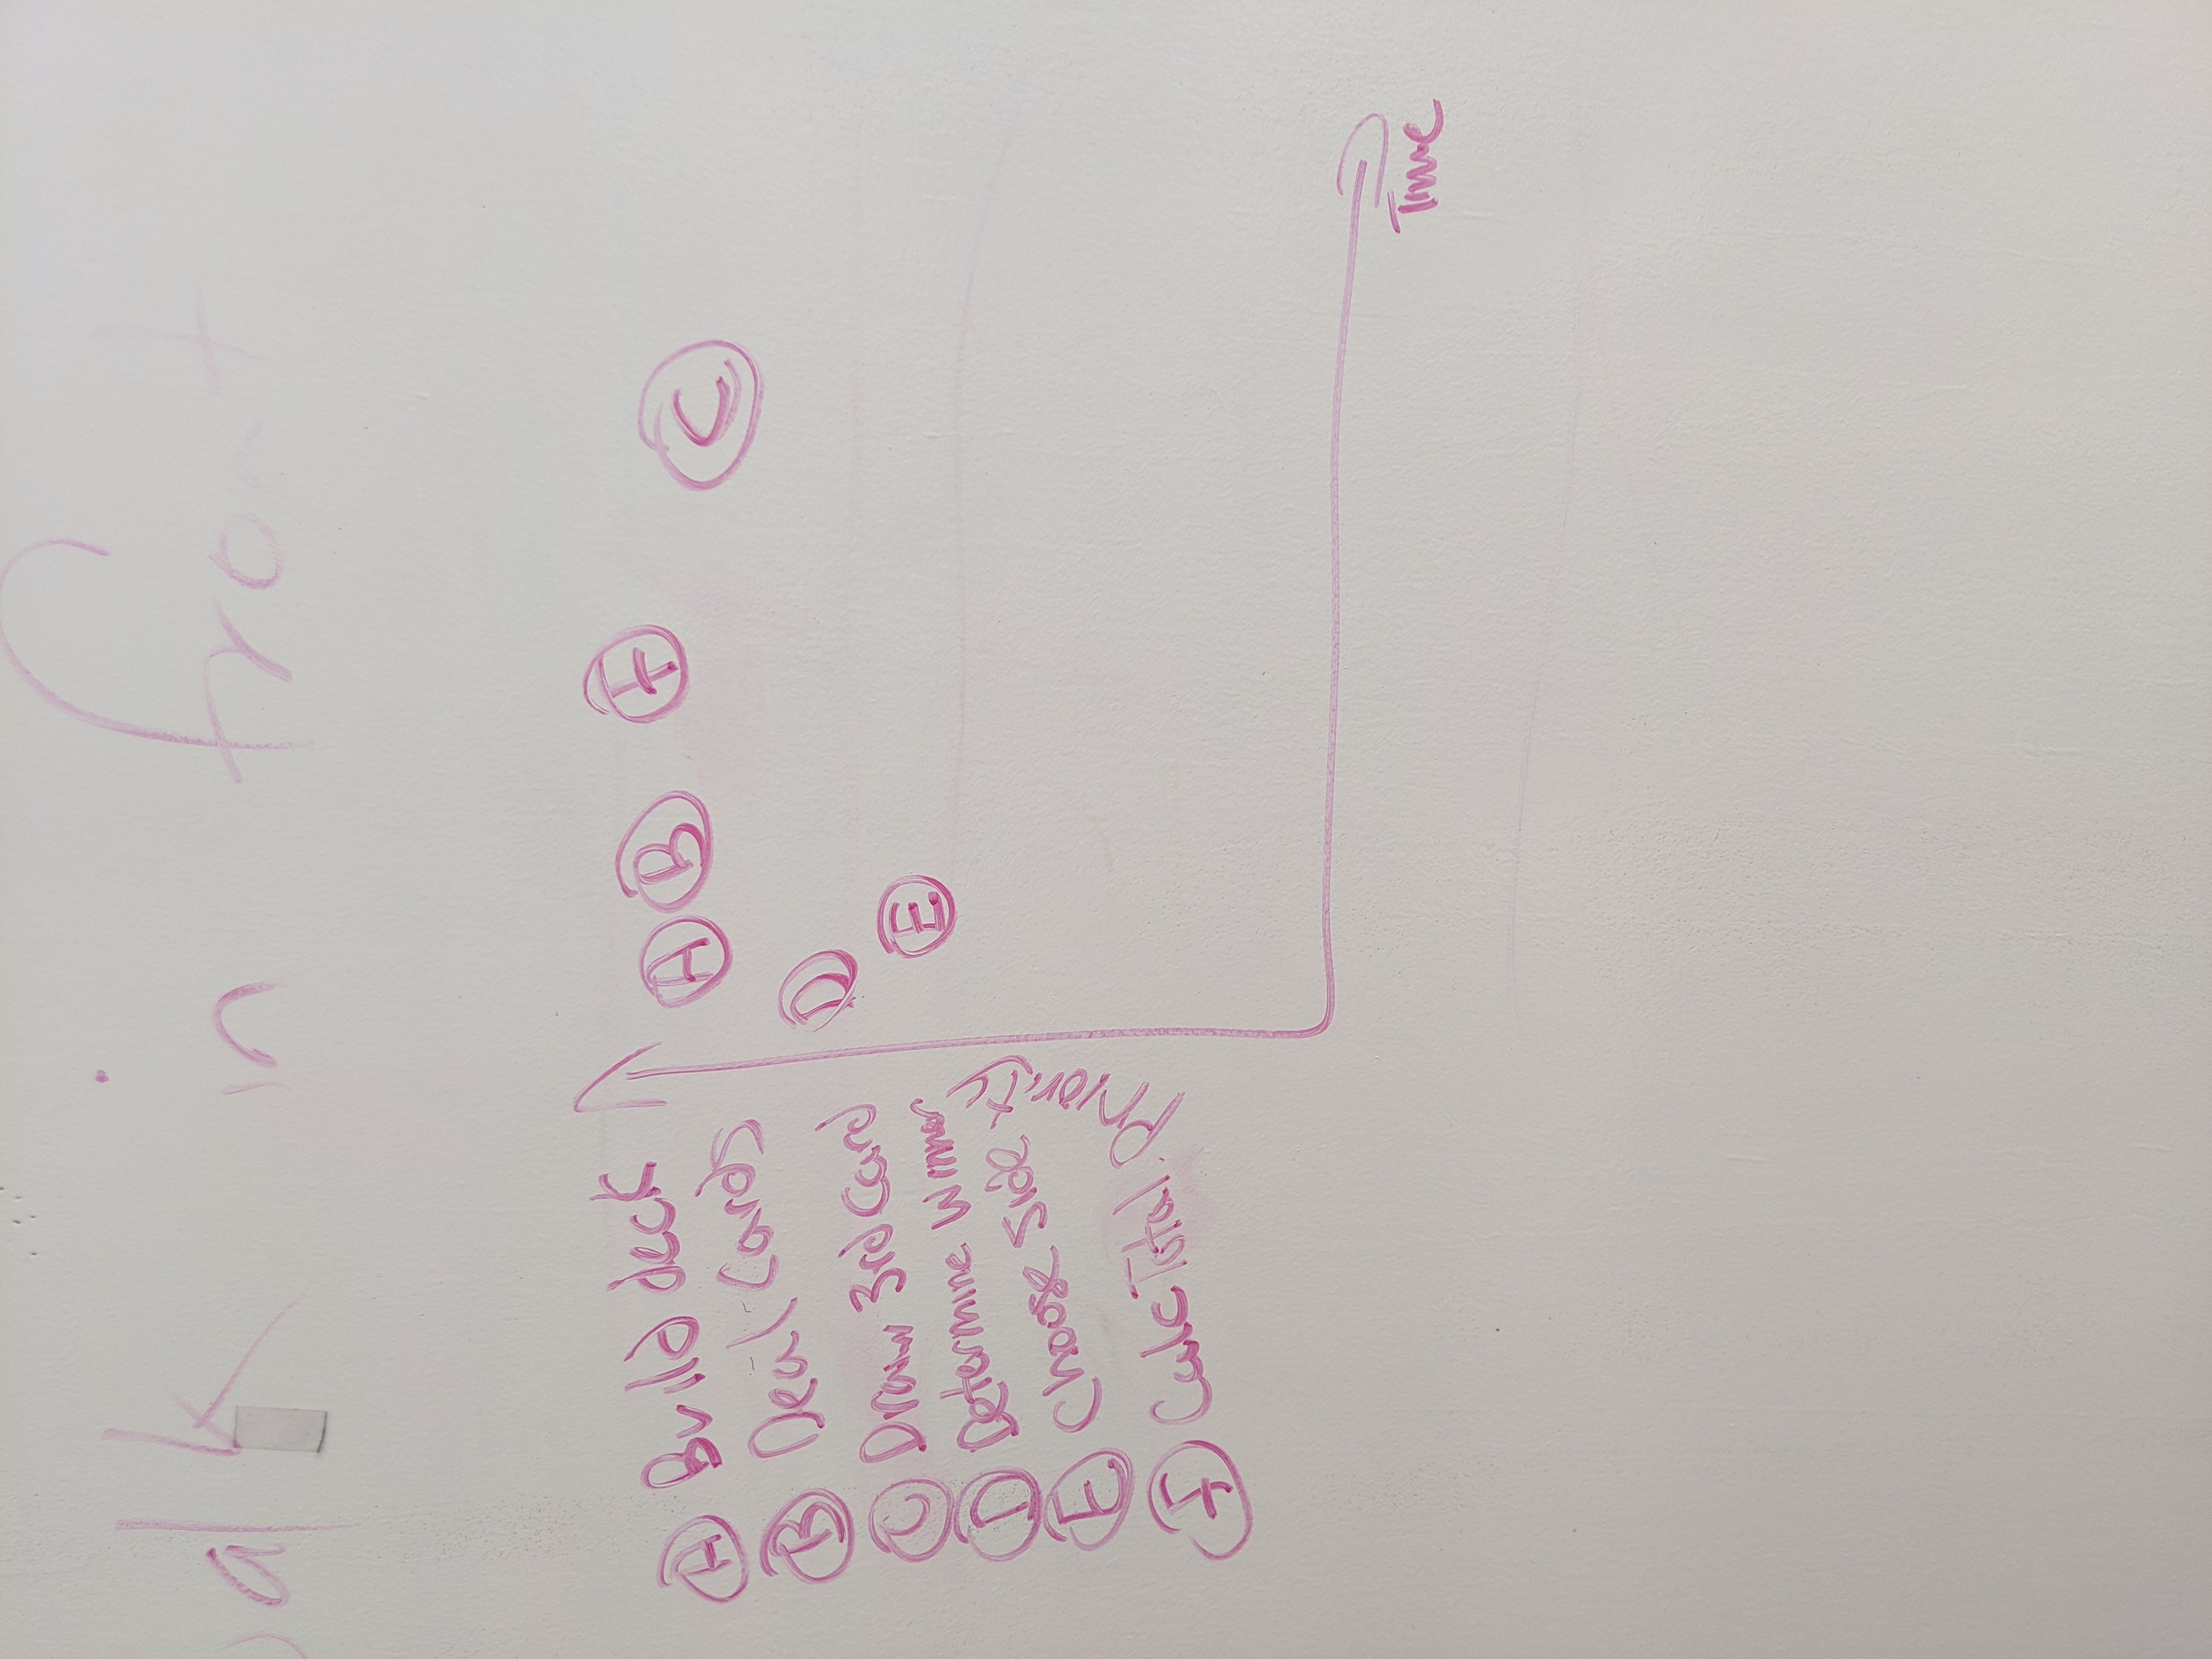 alk in front
A Build deck
B Deal Cards
C Draw 3rd Card
D Determine Winner
E Choose Side
F Calc Total
Priority
A B F C
D
E
Time